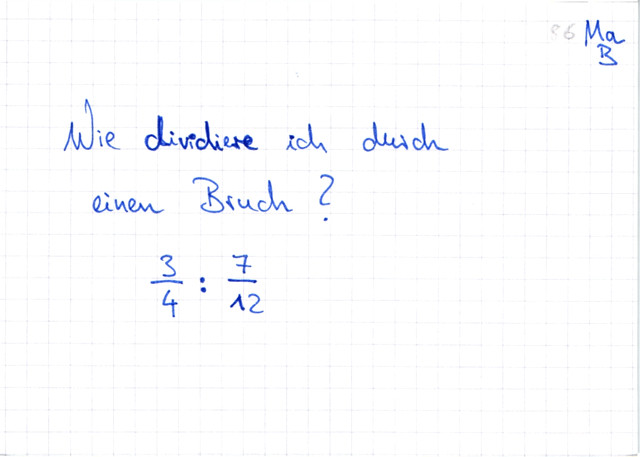 86 Ma
B
Wie dividiere ich durch
einen Bruch?
3/4 : 7/12